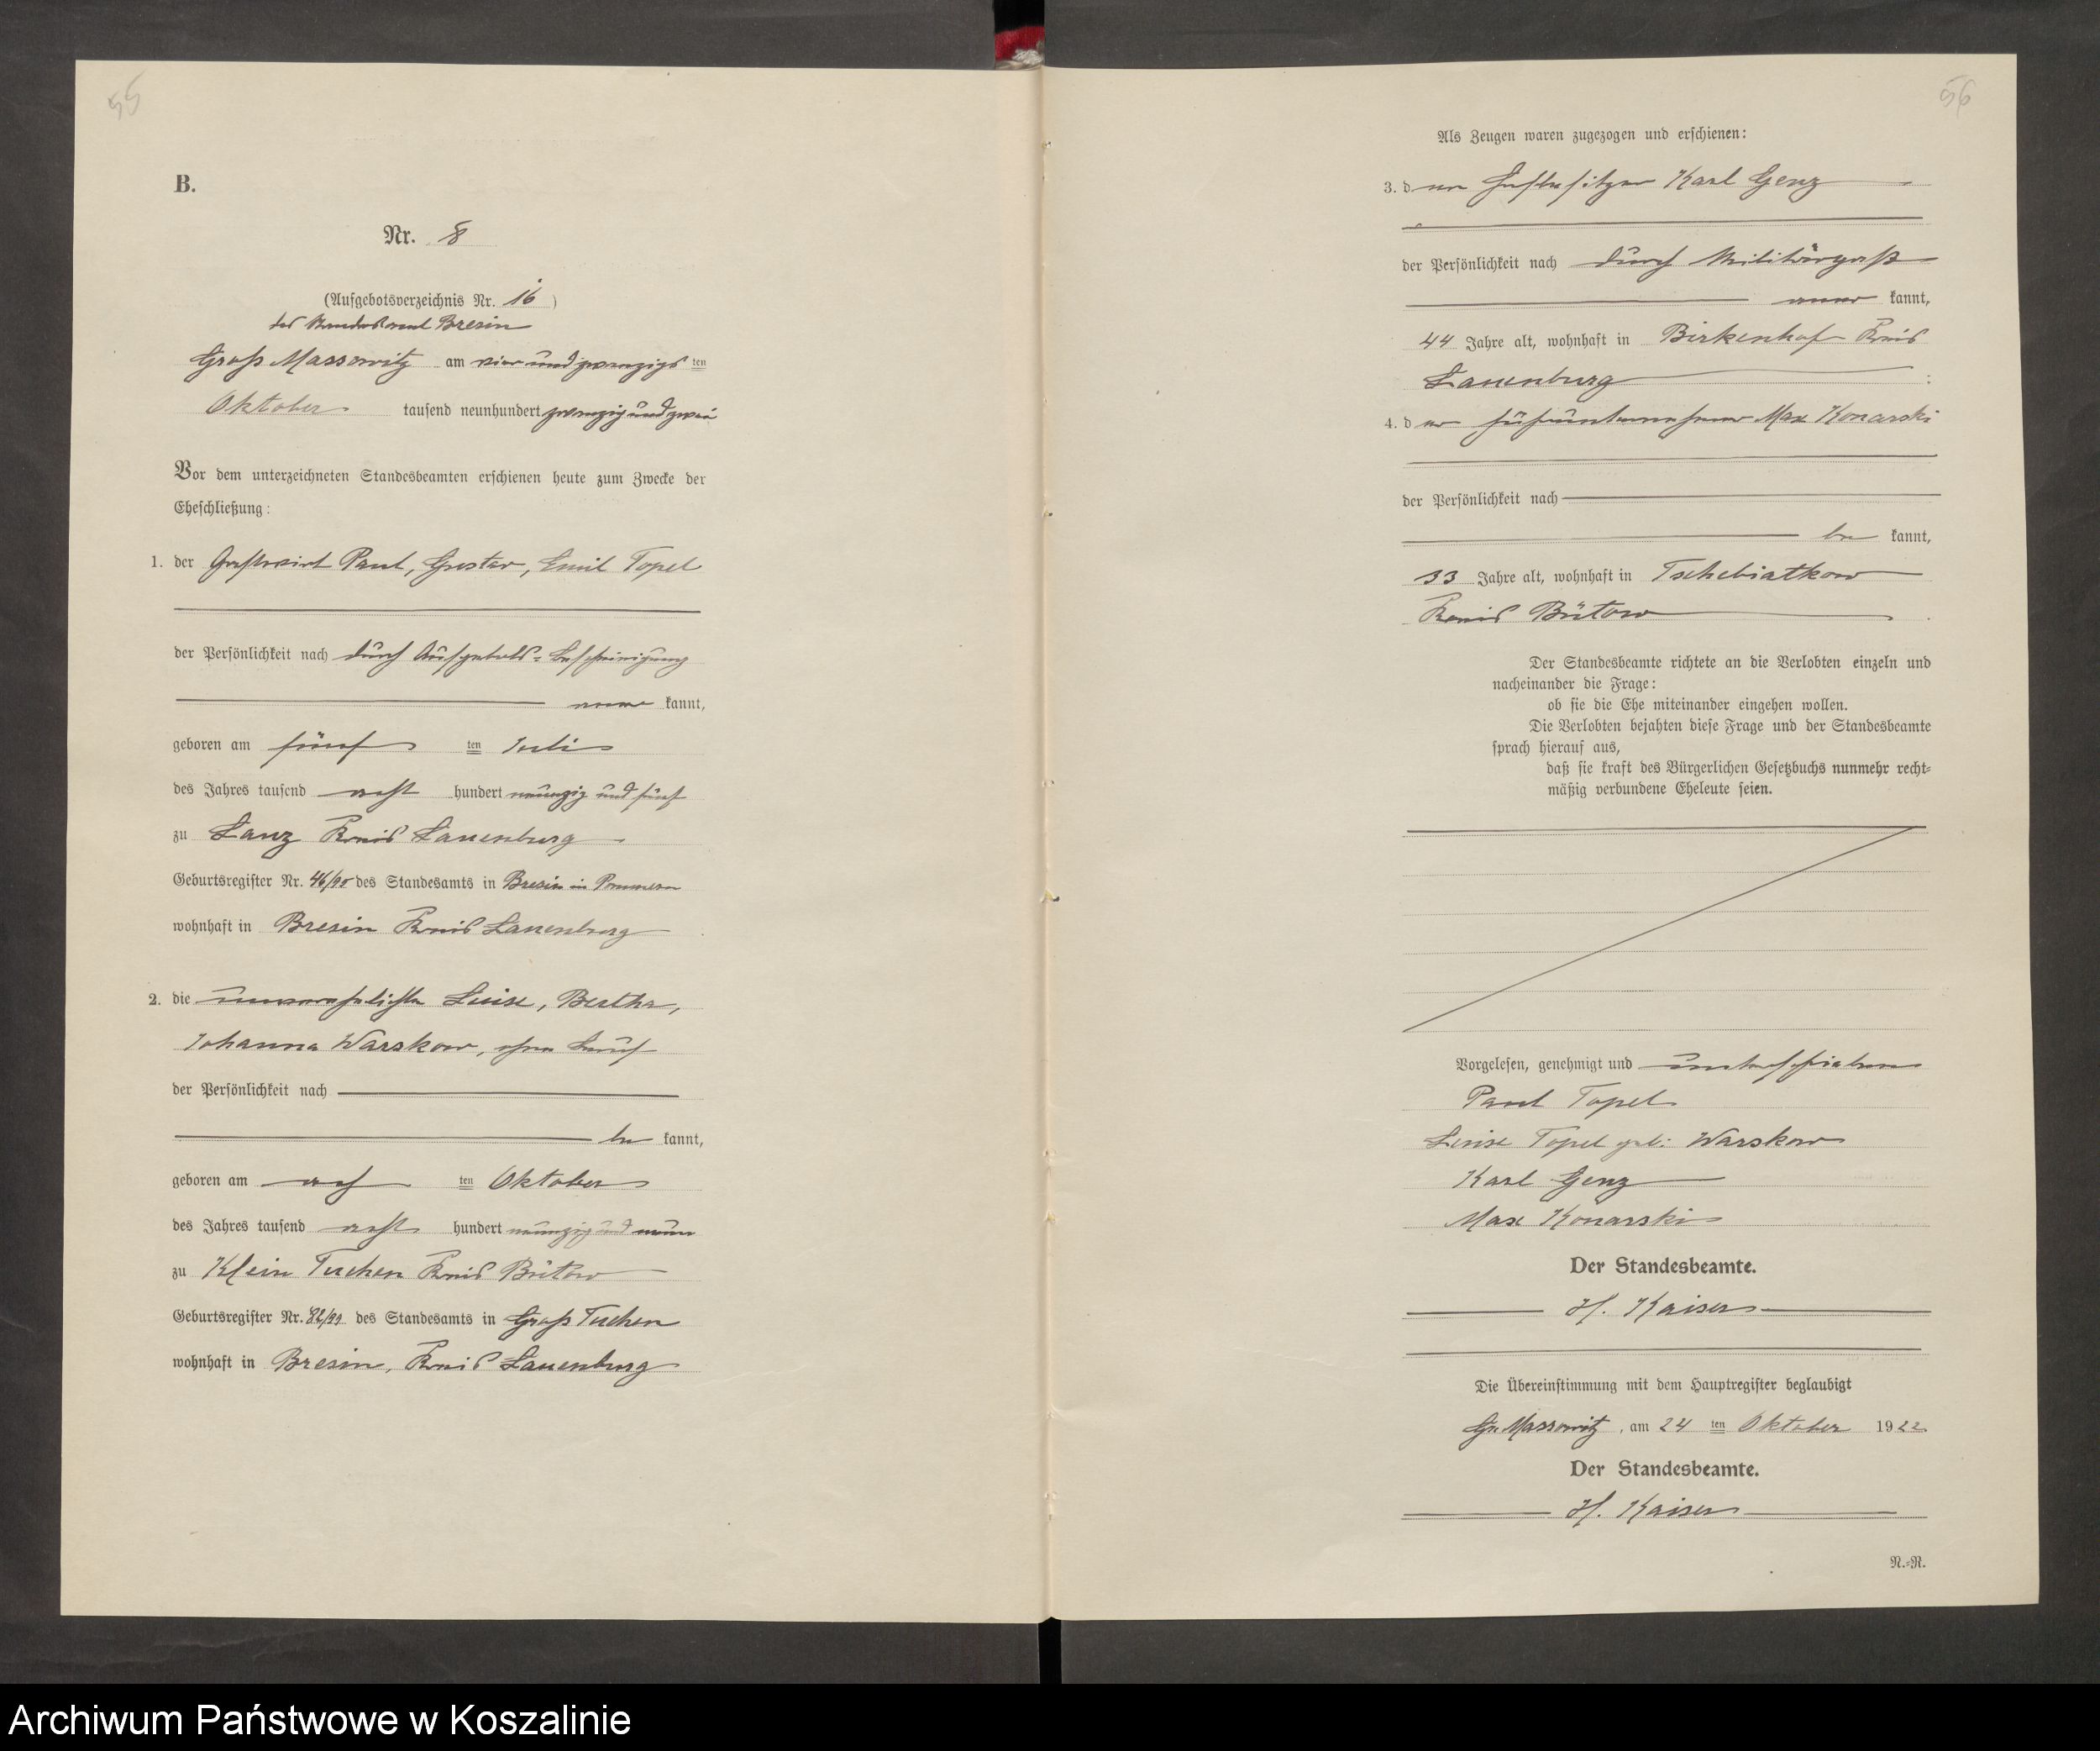 55
B.
Nr. 8
(Aufgebotsverzeichnis Nr. 16)
des Standesamt Bresin
Groß Massowitz am vier und zwanzigs ten
Oktober tausend neunhundert zwanzig und zwei
Vor dem unterzeichneten Standesbeamten erschienen heute zum Zwecke der
Eheschließung:
1. der Gastwirt Paul, Gustav, Emil Topel
der Persönlichkeit nach durch Aufgebots-Bescheinigung
aner kannt,
geboren am fünf ten Juli
des Jahres tausend acht hundert neunzig und fünf
zu Lanz Kreis Lauenburg
Geburtsregister Nr. 46/95 des Standesamts in Bresin in Pommern
wohnhaft in Bresin Kreis Lauenburg
2. die unverehelichte Luise, Bertha,
Johanna Warskow, ohne Beruf
der Persönlichkeit nach
be kannt,
geboren am ach ten Oktober
des Jahres tausend acht hundert neunzig und neun
zu Klein Tuchen Kreis Bütow
Geburtsregister Nr. 82/99 des Standesamts in Groß Tuchen
wohnhaft in Bresin, Kreis Lauenburg
56
Als Zeugen waren zugezogen und erschienen:
3. der Hofbesitzer Karl Genz
der Persönlichkeit nach durch Militärpaß
aner kannt,
44 Jahre alt, wohnhaft in Birkenhof Kreis
Lauenburg
4. d er Max Konarski
der Persönlichkeit nach
be kannt,
33 Jahre alt, wohnhaft in Tschebiatkow
Kreis Bütow
Der Standesbeamte richtete an die Verlobten einzeln und
nacheinander die Frage:
ob sie die Ehe miteinander eingehen wollen.
Die Verlobten bejahten diese Frage und der Standesbeamte
sprach hierauf aus,
daß sie kraft des Bürgerlichen Gesetzbuchs nunmehr recht-
mäßig verbundene Eheleute seien.
Vorgelesen, genehmigt und unterschrieben
Paul Topel
Luise Topel geb: Warskow
Karl Genz
Max Konarski
Der Standesbeamte.
H. Kaiser
Die Übereinstimmung mit dem Hauptregister beglaubigt
Gr. Massowitz, am 24 ten Oktober 1922
Der Standesbeamte.
H. Kaiser
N.-R.
Archiwum Państwowe w Koszalinie